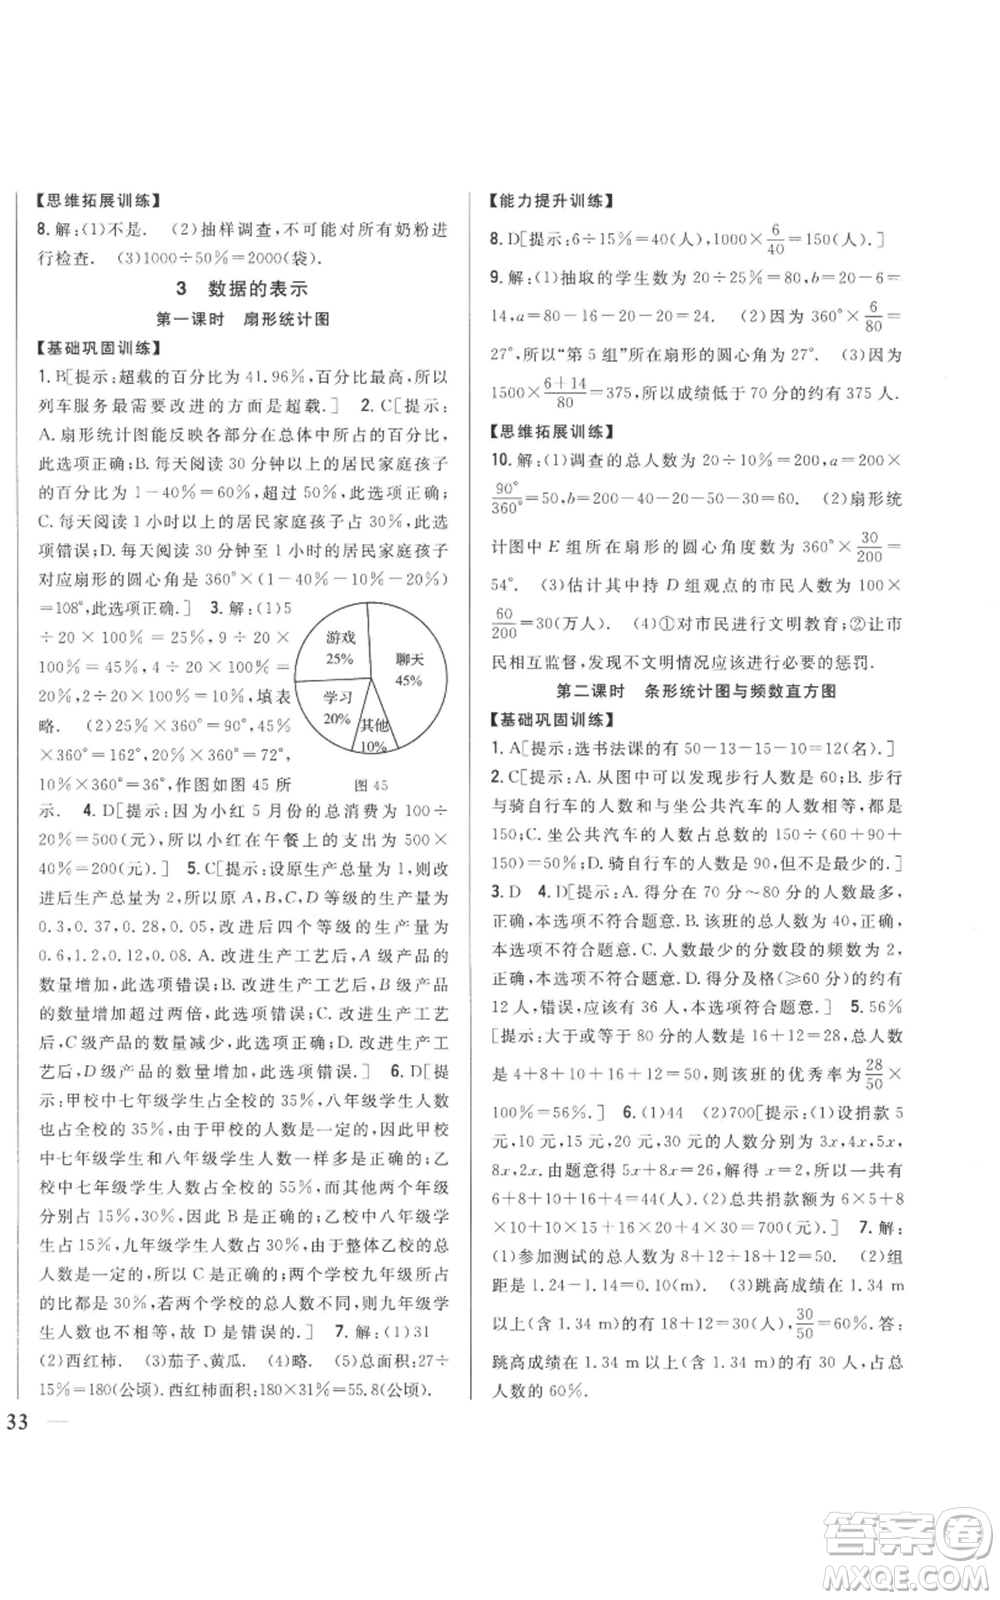 【思维拓展训练】
8. 解:(1)不是. (2)抽样调查,不可能对所有奶粉进
行检查. (3)1000÷50%=2000(袋).
3 数据的表示
第一课时 扇形统计图
【基础巩固训练】
1. B[提示:超载的百分比为 41.96%,百分比最高,所以
列车服务最需要改进的方面是超载.] 2. C[提示:
A. 扇形统计图能反映各部分在总体中所占的百分比,
此选项正确;B. 每天阅读 30 分钟以上的居民家庭孩子
的百分比为 1-40%=60%,超过 50%,此选项正确;
C. 每天阅读 1 小时以上的居民家庭孩子占 30%,此选
项错误;D. 每天阅读 30 分钟至 1 小时的居民家庭孩子
对应扇形的圆心角是 360°×(1-40%-10%-20%)
=108°,此选项正确.] 3. 解:(1)5
÷20×100%=25%,9÷20×
100%=45%,4÷20×100%=
20%,2÷20×100%=10%,填表
略. (2)25%×360°=90°,45%
×360°=162°,20%×360°=72°,
10%×360°=36°,作图如图 45 所
游戏
25%
聊天
45%
学习
20%
其他
10%
图 45
示. 4. D[提示:因为小红 5 月份的总消费为 100÷
20%=500(元),所以小红在午餐上的支出为 500×
40%=200(元).] 5. C[提示:设原生产总量为 1,则改
进后生产总量为 2,所以原 A,B,C,D 等级的生产量为
0.3,0.37,0.28,0.05,改进后四个等级的生产量为
0.6,1.2,0.12,0.08. A. 改进生产工艺后,A 级产品的
数量增加,此选项错误;B. 改进生产工艺后,B 级产品
的数量增加超过两倍,此选项错误;C. 改进生产工艺
后,C 级产品的数量减少,此选项正确;D. 改进生产工
艺后,D 级产品的数量增加,此选项错误.] 6. D[提
示:甲校中七年级学生占全校的 35%,八年级学生人数
也占全校的 35%,由于甲校的人数是一定的,所以甲校
中七年级学生和八年级学生人数一样多是正确的;乙
校中七年级学生人数和八年级学生人数占全校的 55%,
分别占 15%,30%,因此 B 是正确的;乙校中八年级学
生占 33%,九年级学生人数占 30%,由于整体乙校的总
人数是一定的,所以 C 是正确的;两个学校九年级学生
的比都是 30%,若两个学校的总人数不同,则九年级学
生人数也不相等,故 D 是错误的.] 7. 解:(1)31
(2)西红柿. (3)茄子、黄瓜. (4)略. (5)总面积:27÷
15%=180(公顷). 西红柿面积:180×31%=55.8(公顷).
33
【能力提升训练】
8. D[提示:6÷15%=40(人),1000×6/40=150(人).]
9. 解:(1)抽取的学生数为 20÷25%=80,b=20-6=
14,a=80-20-20-20=20+4. (2)因为 360°×6/80=
27°,所以“第 5 组”所在扇形的圆心角为 27°. (3)因为
1500×(6+14)/80=375,所以成绩低于 70 分的约有 375 人.
【思维拓展训练】
10. 解:(1)调查的总人数为 20÷10%=200,a=200×
90°/360°=50,b=200-40-20-50-30=60. (2)扇形统
计图中 E 组所在扇形的圆心角度数为 360°×30/200=
54°. (3)估计其中持 D 组观点的市民人数为 100×
60/200=30(万人). (4)①对市民进行文明教育;②让市
民相互监督,发现不文明情况应该进行必要的惩罚.
第二课时 条形统计图与频数直方图
【基础巩固训练】
1. A[提示:选书法课的有 50-13-15-10=12(名).]
2. C[提示:A. 从图中可以发现步行人数是 60;B. 步行
与骑自行车的人数和与坐公共汽车的人数相等,都是
150;C. 坐公共汽车的人数占总数的 150÷(60+90+
150)=50%;D. 骑自行车的人数是 90,但不是最少.]
3. D 4. D[提示:A. 得分在 70 分~80 分的人数最多,
正确,本选项不符合题意. B. 该班的总人数为 40,正确,
本选项不符合题意. C. 人数最少的分数段的频数为 2,
正确,本选项不符合题意. D. 得分及格(≥60 分)的约有
12 人,错误,应该有 36 人,本选项符合题意.] 5. 56%
[提示:大于或等于 80 分的人数为 16+12=28,总人数
为 4+8+10+16+12=50,则该班的优秀率为 28/50×
100%=56%.] 6. (1)44 (2)700[提示:(1)设捐款 5
元,10元,15元,20元,30元的人数分别为 3x,4x,5x,
8x,2x. 由题意可得 5x+8x=26,解得 x=2,所以一共有
6+8+10+16+4=44(人). (2)总共捐款额为 6×5+8
×10+10×15+16×20+4×30=700(元).] 7. 解:
(1)参加测试的总人数为 8+12+18+12=50. (2)组
距是 1.24-1.14=0.1(m). (3)跳高成绩在 1.34 m
以上(含 1.34 m)的有 18+12=30(人),30/50=60%. 答:
跳高成绩在 1.34 m 以上(含 1.34 m)的有 30 人,占总
人数的 60%.
答案圈
MXQE.COM